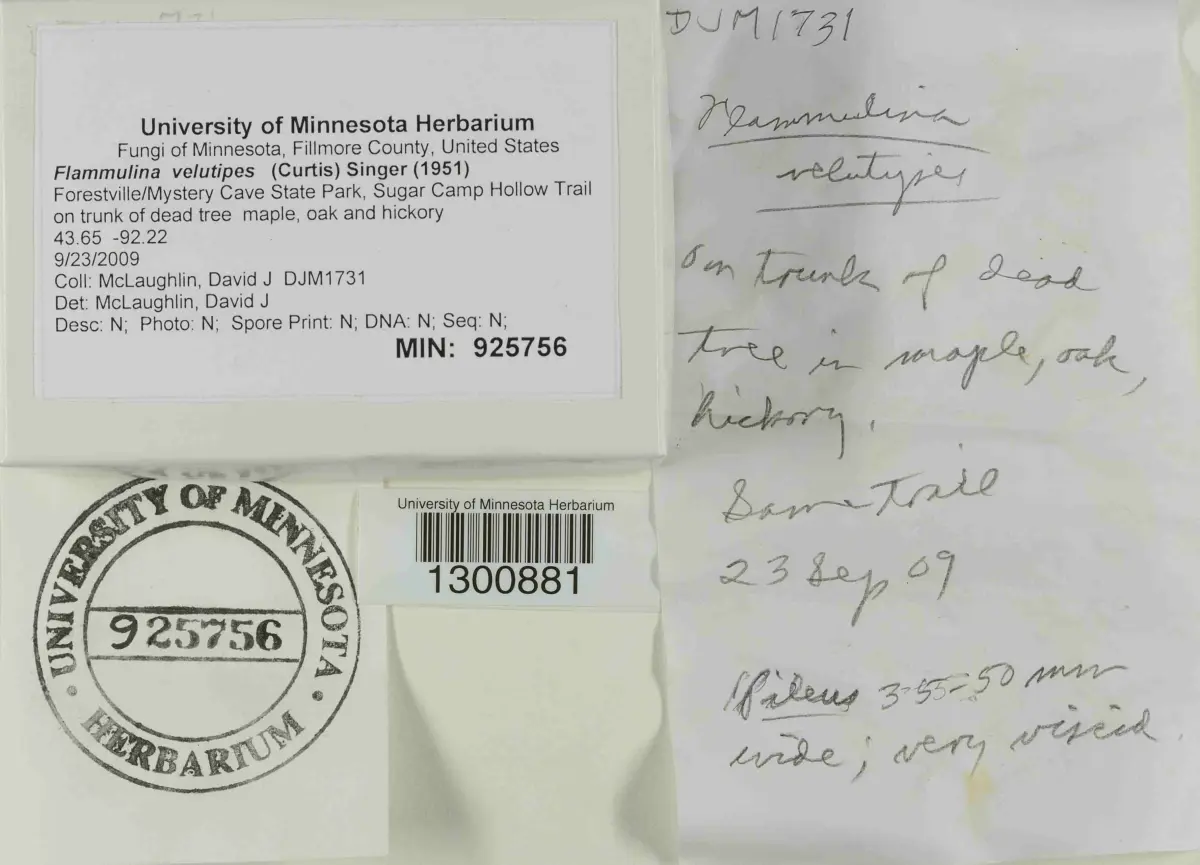 University of Minnesota Herbarium
Fungi of Minnesota, Fillmore County, United States
Flammulina velutipes (Curtis) Singer (1951)
Forestville/Mystery Cave State Park, Sugar Camp Hollow Trail
on trunk of dead tree maple, oak and hickory
43.65 -92.22
9/23/2009
Coll: McLaughlin, David J DJM1731
Det: McLaughlin, David J
Desc: N; Photo: N; Spore Print: N; DNA: N; Seq: N;
MIN: 925756
UNIVERSITY OF MINNESOTA
925756
HERBARIUM
University of Minnesota Herbarium
1300881
DJM1731
Flammulina
velutipes
on trunk of dead
tree in maple, oak,
hickory.
Same trail
23 Sep 09
Pileus mm
wide; very viscid.